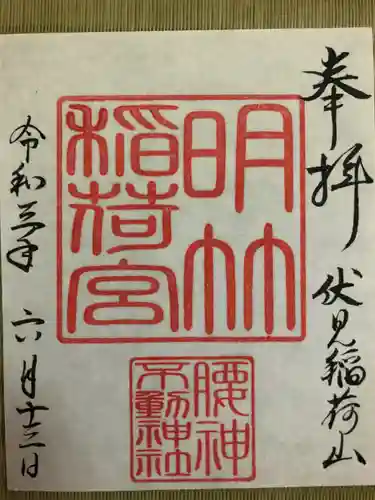 奉拝
伏見稲荷山
明竹
稲荷宮
腰神
不動神社
令和三年
六月十三日